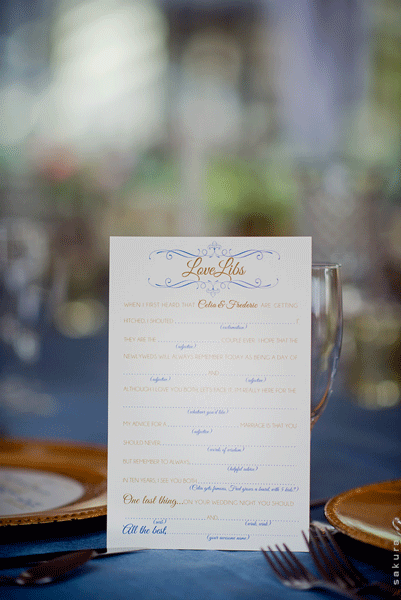 LoveLibs
WHEN I FIRST HEARD THAT Celia & Frederic ARE GETTING
HITCHED I SHOUTED, !
(exclamation)
THEY ARE THE COUPLE EVER! I HOPE THAT THE
(adjective)
NEWLYWEDS WILL ALWAYS REMEMBER TODAY AS BEING A DAY OF
AND .
(adjective) (adjective)
ALTHOUGH I LOVE YOU BOTH, LET'S FACE IT, I'M REALLY HERE FOR THE
(whatever you'd like)
MY ADVICE FOR A MARRIAGE IS THAT YOU
(adjective)
SHOULD NEVER
(words of wisdom)
BUT REMEMBER TO ALWAYS
(helpful advice)
IN TEN YEARS I SEE YOU BOTH
One last thing... ON YOUR WEDDING NIGHT YOU SHOULD
AND
(verb) (verb, verb)
All the best,
(your awesome name)
sakura